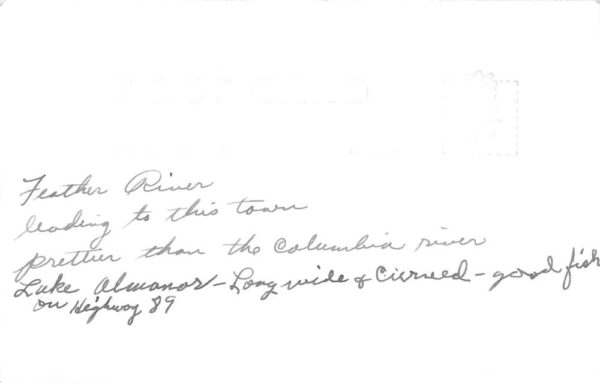 Feather River
leading to this town
prettier than the Columbia river
Lake Almanor - Long wide & Curved - good fish
on Highway 89